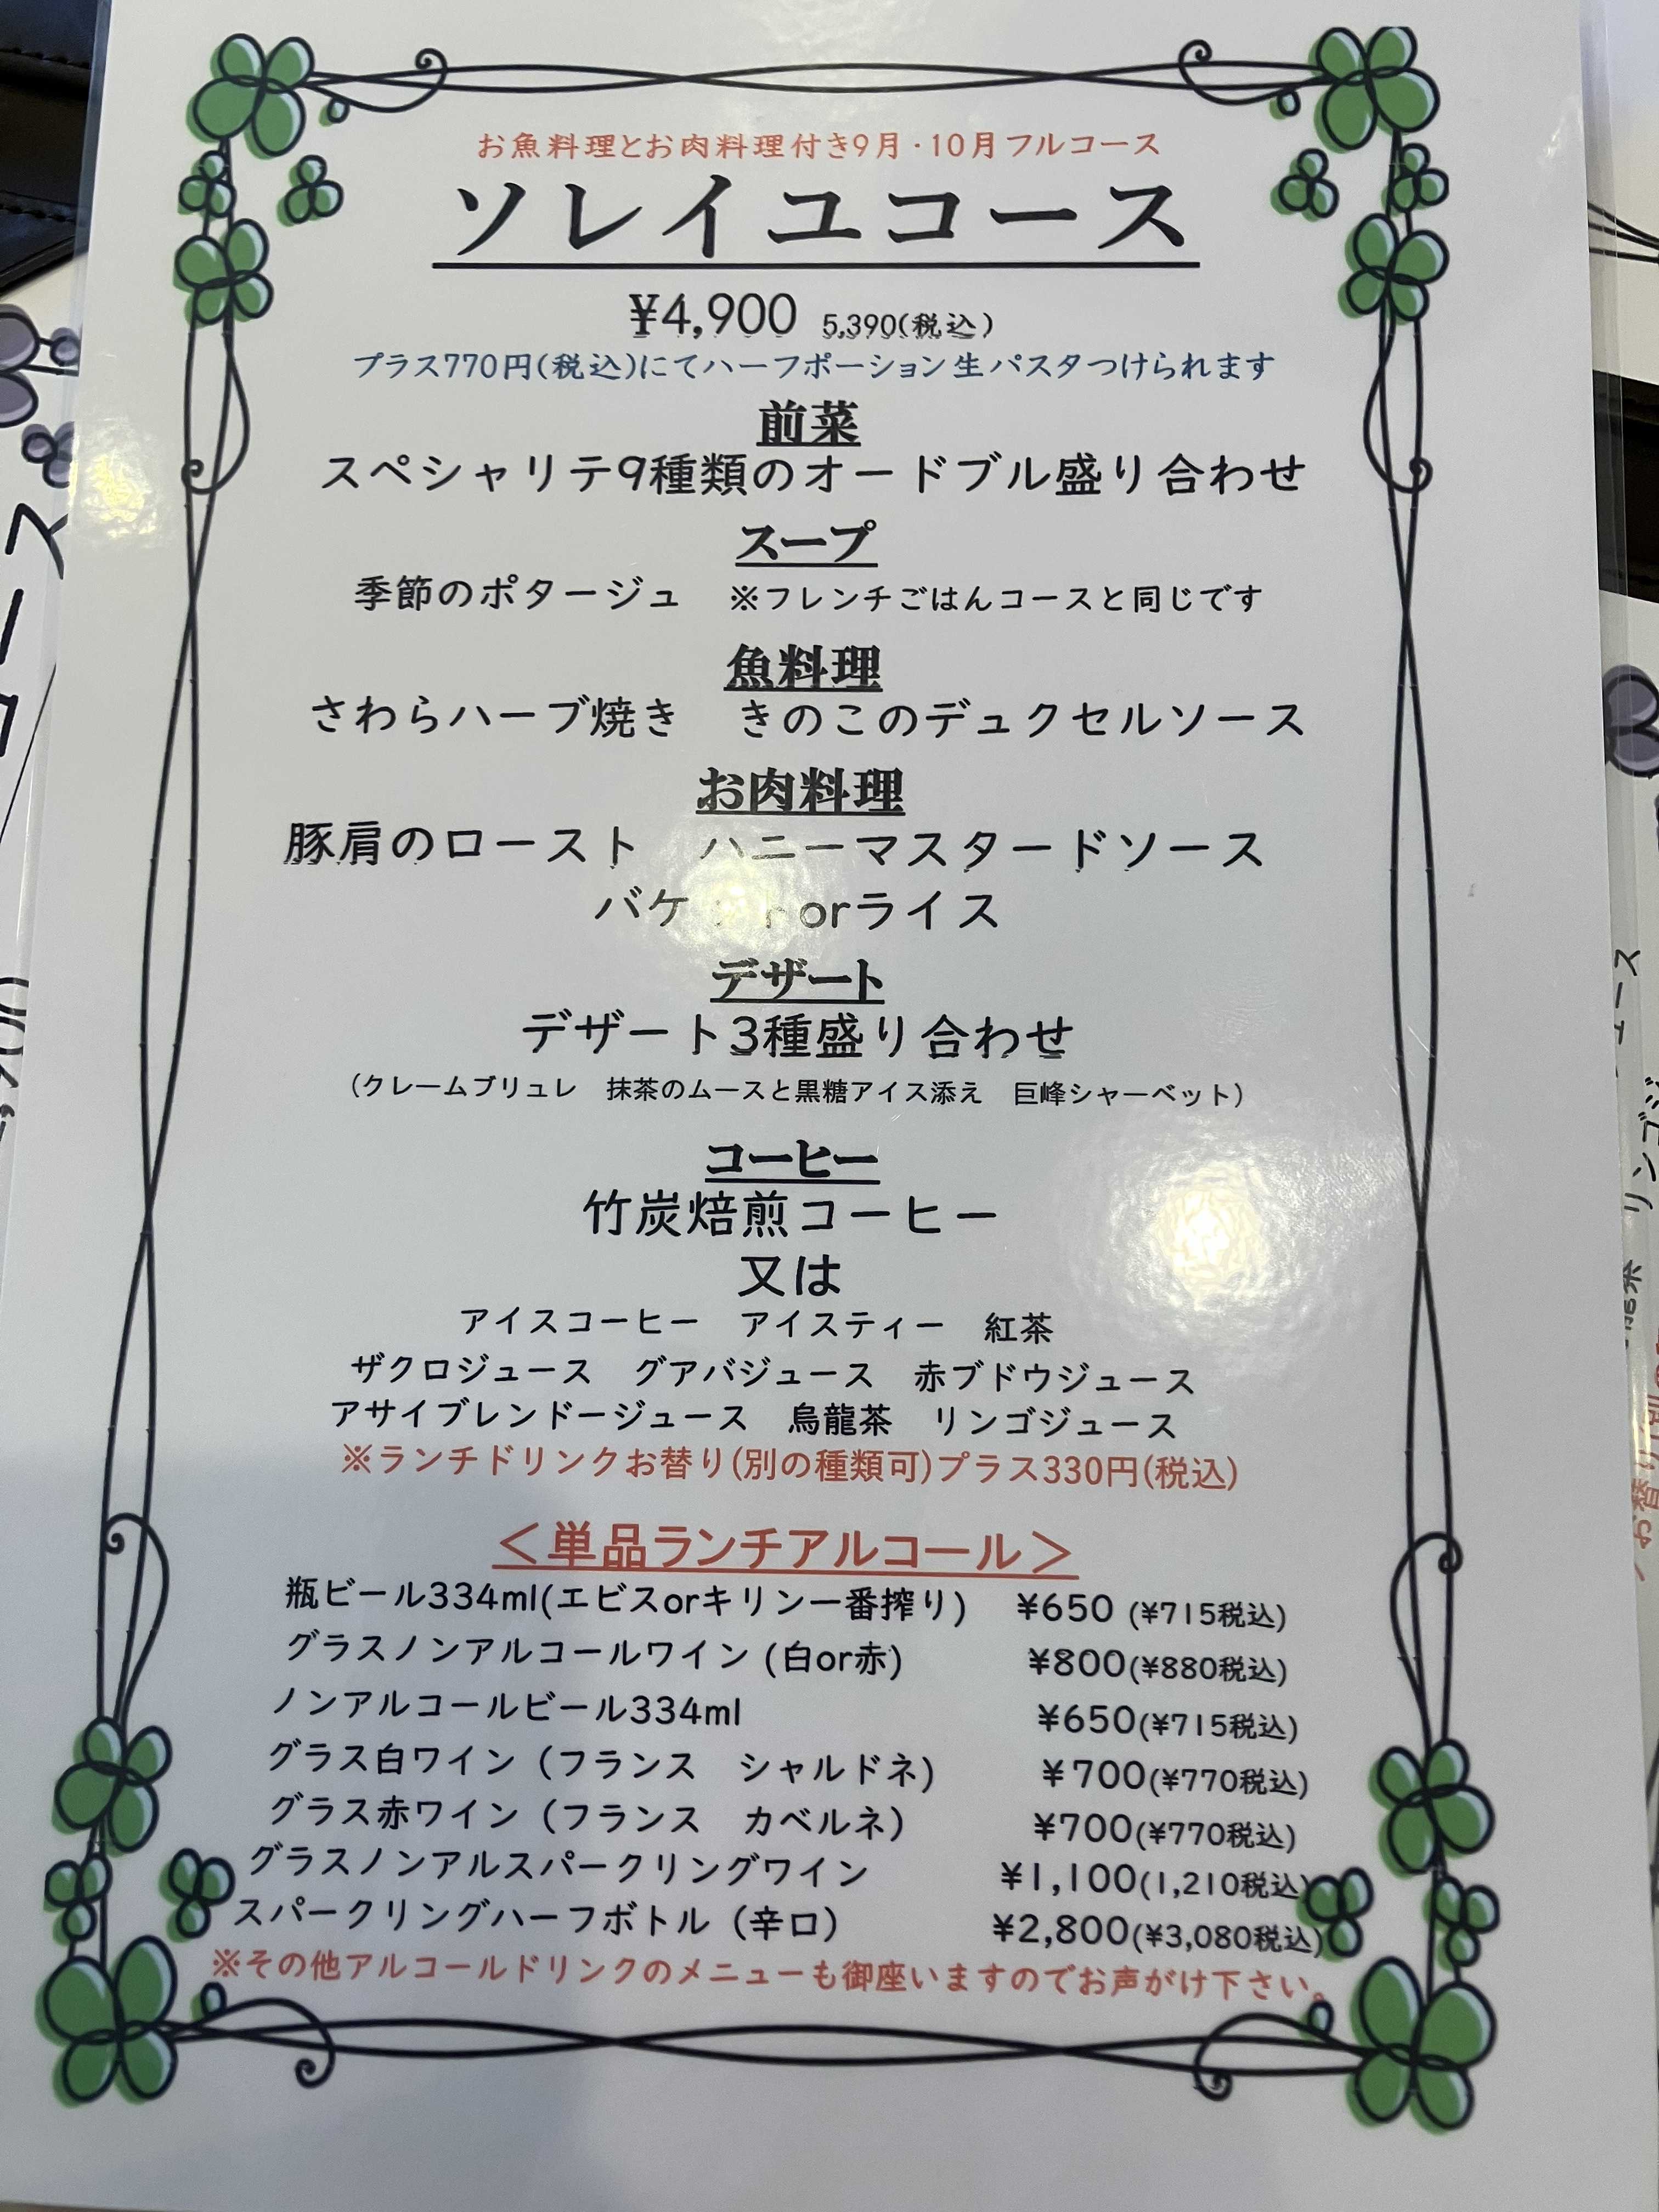 お魚料理とお肉料理付き9月・10月フルコース
ソレイユコース
¥4,900 5,390(税込)
プラス770円(税込)にてハーフポーション生パスタつけられます
前菜
スペシャリテ9種類のオードブル盛り合わせ
スープ
季節のポタージュ ※フレンチごはんコースと同じです
魚料理
さわらハーブ焼き きのこのデュクセルソース
お肉料理
豚肩のロースト ハニーマスタードソース
orライス
デザート
デザート3種盛り合わせ
(クレームブリュレ 抹茶のムースと黒糖アイス添え 巨峰シャーベット)
コーヒー
竹炭焙煎コーヒー
又は
アイスコーヒー アイスティー 紅茶
ザクロジュース グアバジュース 赤ブドウジュース
アサイブレンドージュース 烏龍茶 リンゴジュース
※ランチドリンクお替り(別の種類可)プラス330円(税込)
＜単品ランチアルコール＞
瓶ビール334ml(エビスorキリン一番搾り) ¥650 (¥715税込)
グラスノンアルコールワイン (白or赤) ¥800(¥880税込)
ノンアルコールビール334ml ¥650(¥715税込)
グラス白ワイン (フランス シャルドネ) ¥700(¥770税込)
グラス赤ワイン (フランス カベルネ) ¥700(¥770税込)
グラスノンアルスパークリングワイン ¥1,100(1,210税込)
スパークリングハーフボトル (辛口) ¥2,800(¥3,080税込)
※その他アルコールドリンクのメニューも御座いますのでお声がけ下さい。